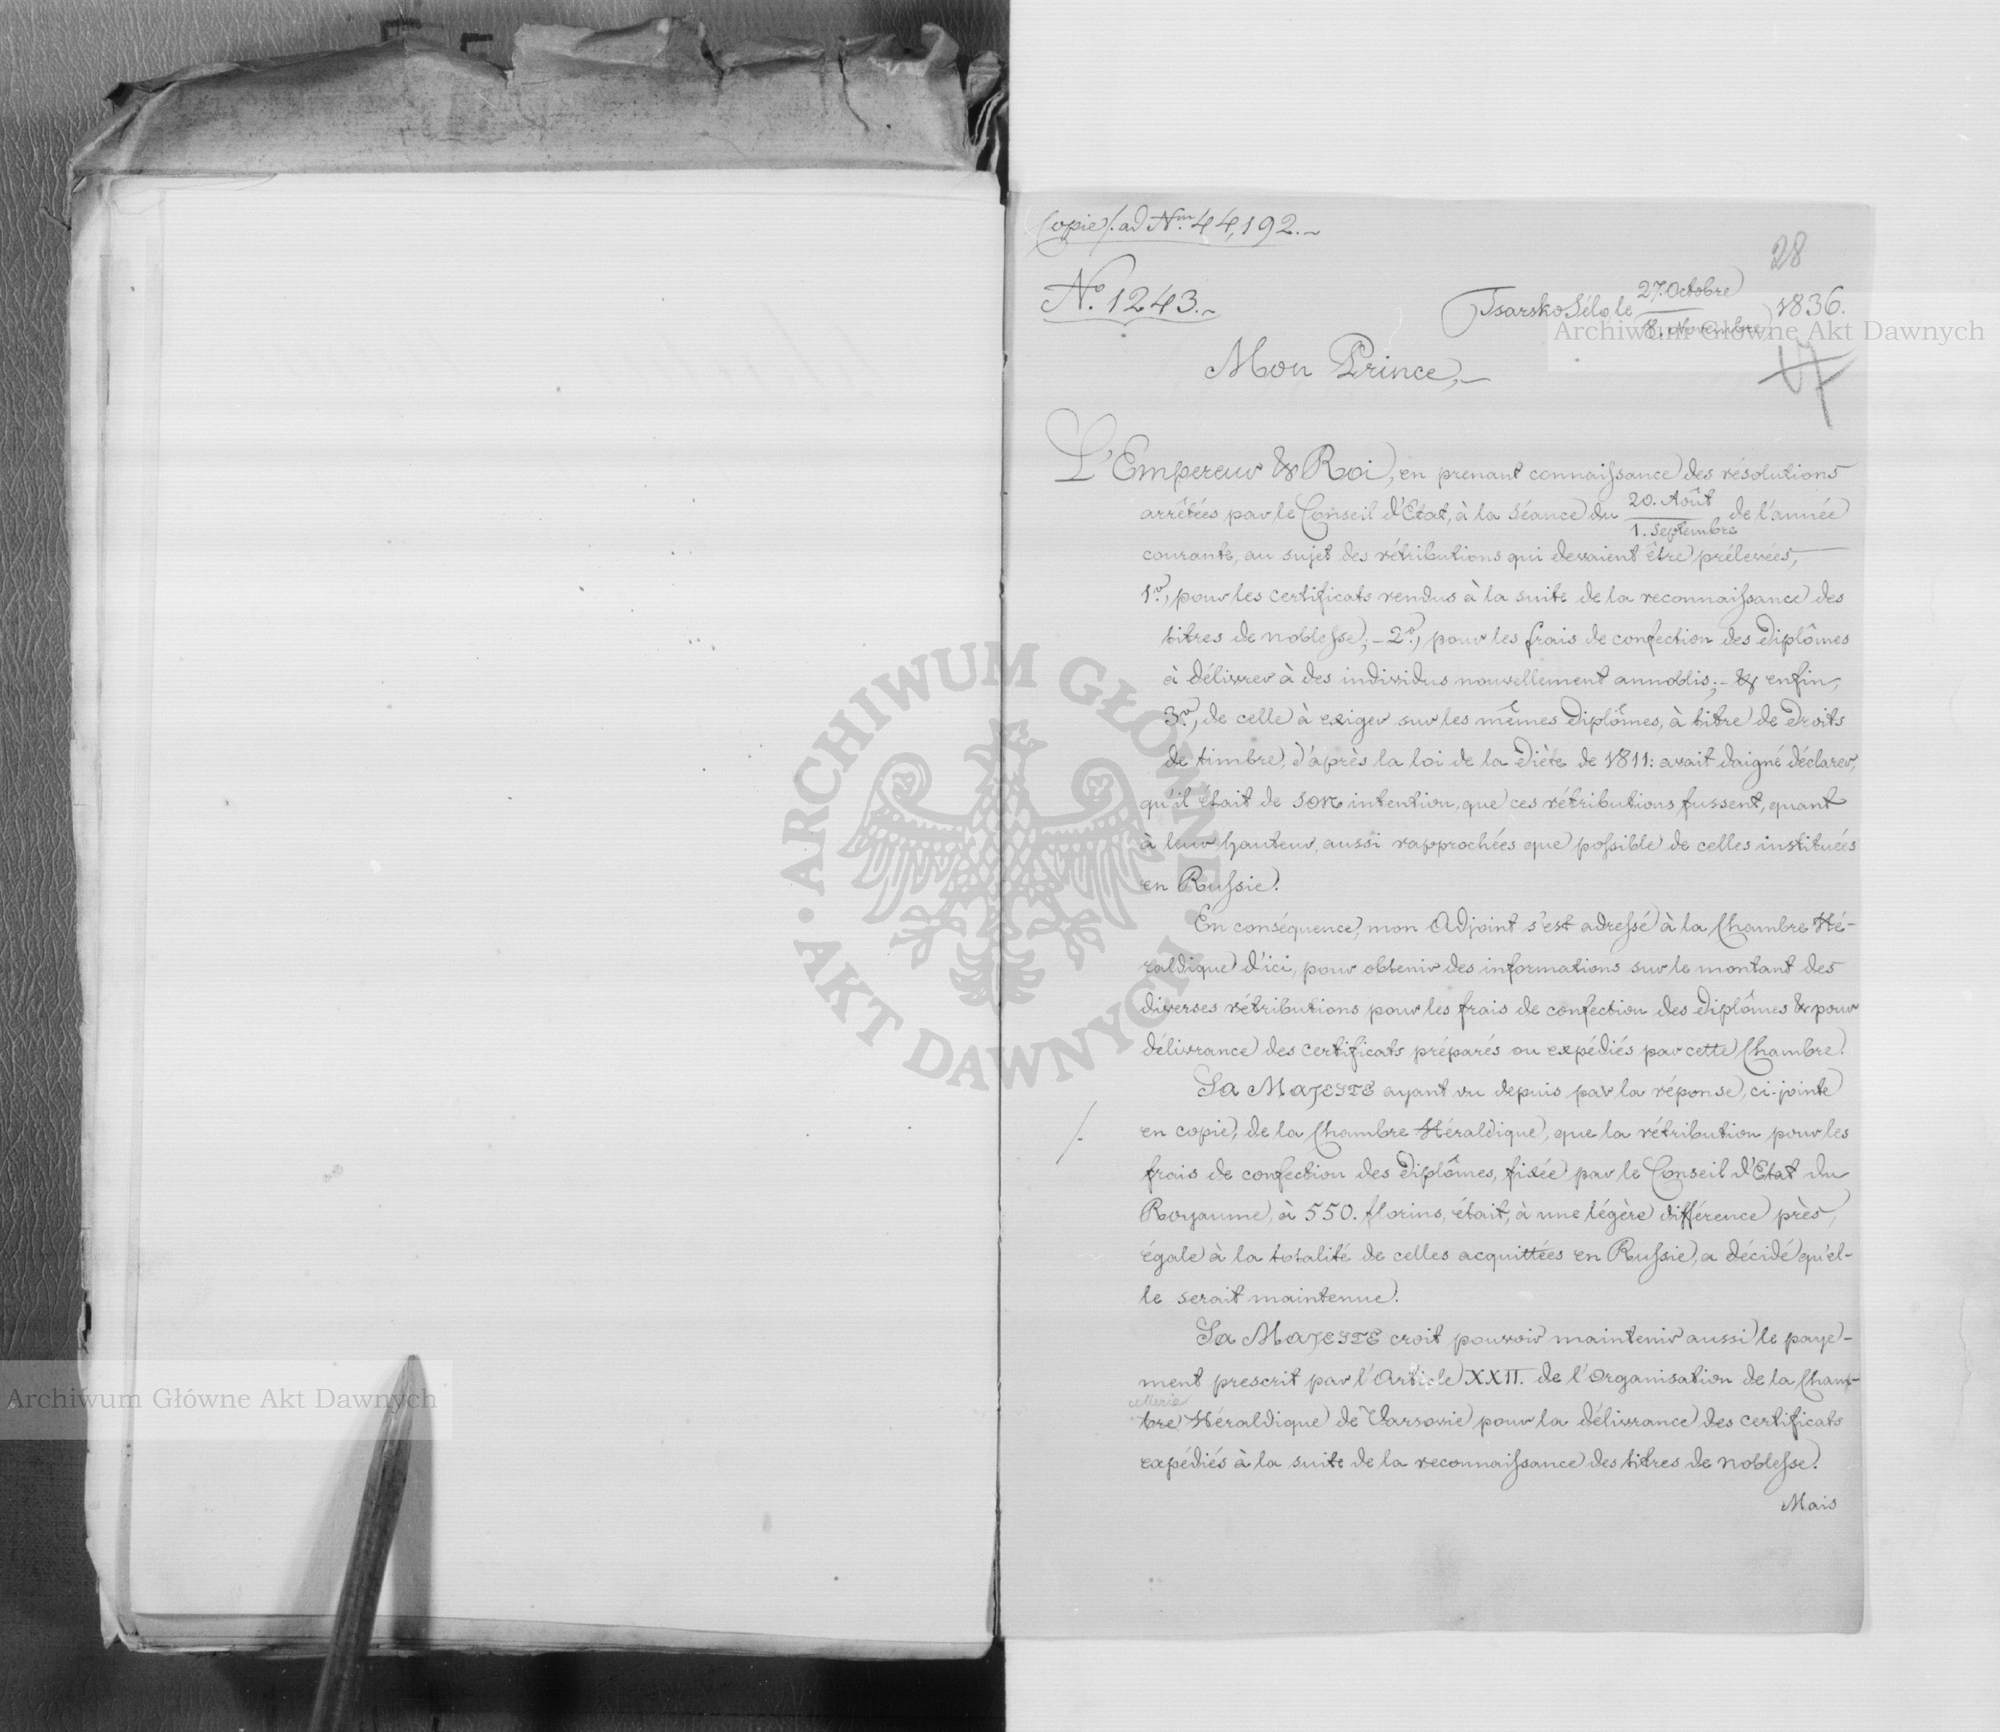 Copie/. ad Nrm 44,192.~
28
No. 1243.~
Tsarsko Sélo, le 27. Octobre / 8. Novembre 1836.
Mon Prince,
L'Empereur & Roi, en prenant connaissance des résolutions
arrêtées par le Conseil d'Etat, à la Séance du 20. Août / 1. Septembre de l'année
courante, au sujet des rétributions qui devaient être prélevées,
1o, pour les certificats rendus à la suite de la reconnaissance des
titres de noblesse; - 2o, pour les frais de confection des Diplômes
à délivrer à des individus nouvellement annoblis; - & enfin,
3o, de celle à exiger sur les mêmes Diplômes, à titre de Droits
de timbre, d'après la loi de la Diète de 1811: avait daigné déclarer,
qu'il était de SON intention, que ces rétributions fussent, quant
à leur hauteur, aussi rapprochées que possible de celles instituées
en Russie.
En conséquence, mon Adjoint s'est adressé à la Chambre Hé-
raldique d'ici, pour obtenir des informations sur le montant des
diverses rétributions pour les frais de confection des Diplômes & pour
délivrance des certificats préparés ou expédiés par cette Chambre.
Sa MAJESTE ayant vu depuis par la réponse, ci-jointe
en copie, de la Chambre Héraldique, que la rétribution pour les
frais de confection des Diplômes, fixée par le Conseil d'Etat du
Royaume, à 550. florins, était, à une légère différence près,
égale à la totalité de celles acquittées en Russie, a décidé qu'el-
le serait maintenue.
Sa MAJESTE croit pouvoir maintenir aussi le paye-
ment prescrit par l'Article XXII. de l'Organisation de la Cham-
bre Héraldique de Varsovie pour la délivrance des certificats
expédiés à la suite de la reconnaissance des titres de noblesse.
Mais
Archiwum Główne Akt Dawnych
Archiwum Główne Akt Dawnych
ARCHIWUM GŁÓWNE · AKT DAWNYCH ·